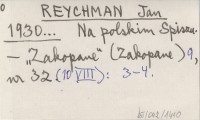 REYCHMAN Jan
1930... Na polskim Spiszu.
— „Zakopane” (Zakopane) 9,
nr 32 (10 VIII): 3-4.